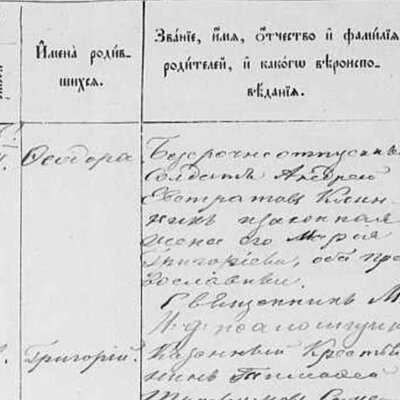 Имена родив-
шихся.
Звание, имя, отчество и фамилия
родителей, и какого вѣроиспо-
вѣдания.
Ѳеодора
Безсрочноотпускн
Солдатъ Андрей
Евстратовъ
и законная
жена его Марія
Григоріева, оба пра
вославные.
Священникъ М
И. д. псаломщика
Григорій.
Казенный Крестья
нинъ Тимофей